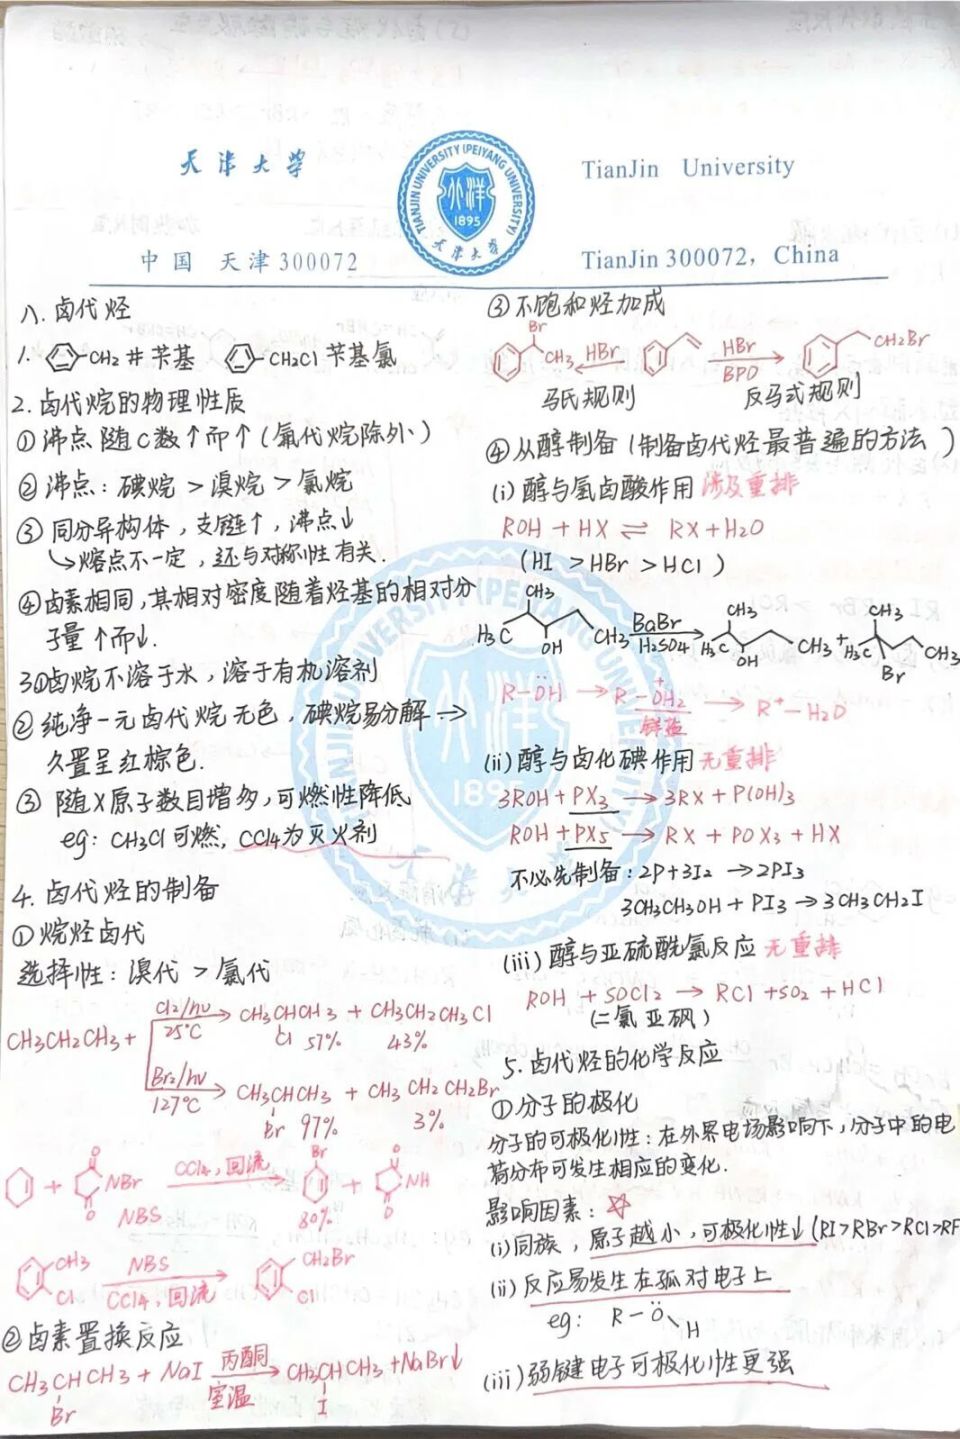 天津大学
TIANJIN UNIVERSITY (PEIYANG UNIVERSITY)
北洋
1895
天津大学
TianJin University
中国 天津 300072
TianJin 300072, China
八. 卤代烃
1. -CH2 # 苄基 CH2Cl 苄基氯
2. 卤代烷的物理性质
① 沸点随C数↑而↑(氟代烷除外)
② 沸点: 碘烷 > 溴烷 > 氯烷
③ 同分异构体, 支链↑, 沸点↓
↳熔点不一定, 还与对称性有关.
④ 卤素相同, 其相对密度随着烃基的相对分
子量↑而↓.
3①卤烷不溶于水, 溶于有机溶剂
② 纯净一元卤代烷无色, 碘烷易分解→
久置呈红棕色.
③ 随X原子数目增多, 可燃性降低
eg: CH3Cl可燃, CCl4为灭火剂
4. 卤代烃的制备
① 烷烃卤代
选择性: 溴代 > 氯代
Cl2/hν
CH3CH2CH3 + 25℃ → CH3CHCH3 + CH3CH2CH3Cl
Cl 57% 43%
Br2/hν
127℃ → CH3CHCH3 + CH3CH2CH2Br
Br 97% 3%
+ O NBr O CCl4, 回流 → Br + O NH O
NBS 80%
CH3 Cl NBS → CH2Br Cl
CCl4, 回流
② 卤素置换反应
CH3CHCH3 + NaI 丙酮 → CH3CHCH3 + NaBr↓
Br 室温 I
③ 不饱和烃加成
Br CH3 ←HBr HBr → CH2Br
BPO
马氏规则 反马式规则
④ 从醇制备 (制备卤代烃最普遍的方法)
(i) 醇与氢卤酸作用 涉及重排
ROH + HX ⇌ RX + H2O
(HI > HBr > HCl)
CH3 CH3 CH3
H3C OH CH3 BaBr → H3C OH CH3 + H3C Br CH3
H2SO4
R-ÖH → R-OH2+ → R+ - H2O
𨦡盐
(ii) 醇与卤化磷作用 无重排
3ROH + PX3 → 3RX + P(OH)3
ROH + PX5 → RX + POX3 + HX
不必先制备: 2P+3I2 → 2PI3
3CH3CH3OH + PI3 → 3CH3CH2I
(iii) 醇与亚硫酰氯反应 无重排
ROH + SOCl2 → RCl + SO2 + HCl
(二氯亚砜)
5. 卤代烃的化学反应
① 分子的极化
分子的可极化性: 在外界电场影响下, 分子中的电
荷分布可发生相应的变化.
影响因素: ☆
(i) 同族, 原子越小, 可极化性↓(RI>RBr>RCl>RF
(ii) 反应易发生在孤对电子上
eg: R-Ö H
(iii) 弱键电子可极化性更强